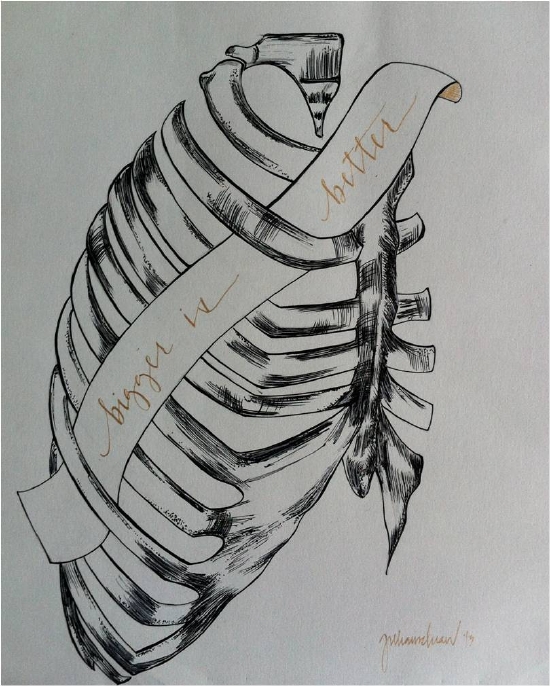 bigger is
better